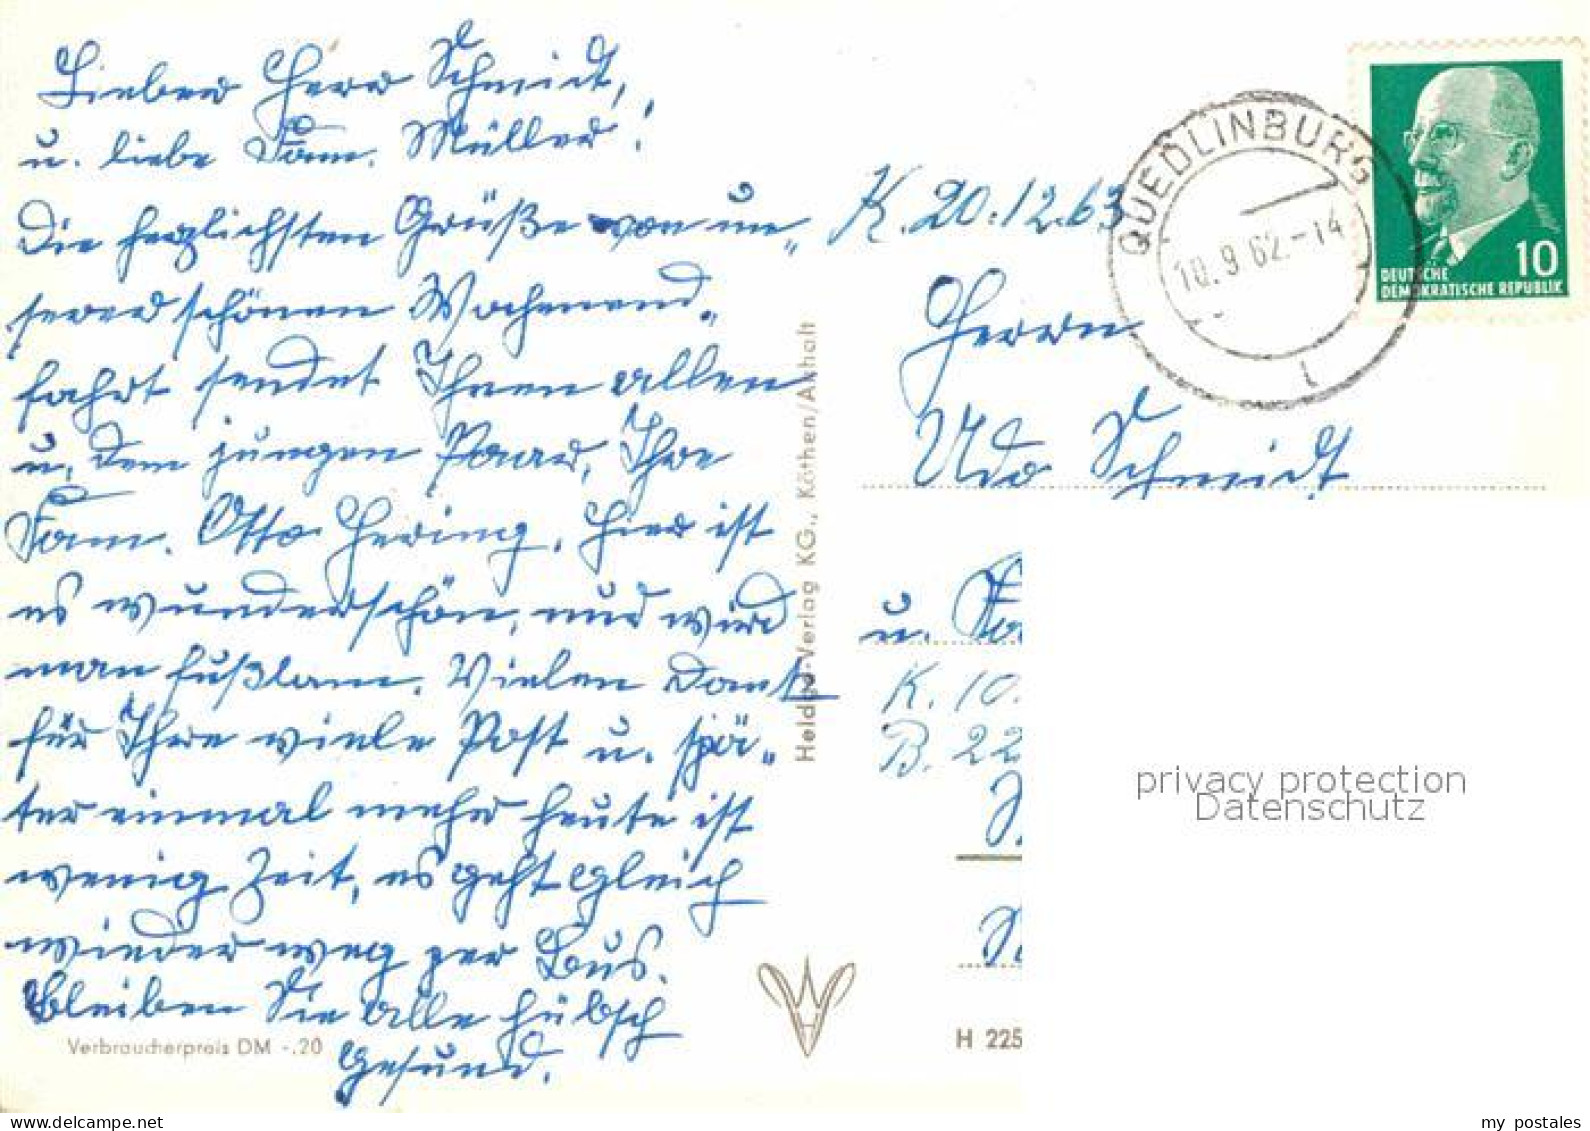 Lieber Herr Schmidt,
u. liebe Fam. Müller!
Die herzlichsten Grüße von un„
serer schönen Wochenend„
fahrt sendet Ihnen allen
u. dem jungen Paar, Ihre
Fam. Otto Hering. Hier ist
es wunderschön, nur wird
man fußlam. Vielen Dank
für Ihre viele Post u. spä„
ter einmal mehr heute ist
wenig Zeit, es geht gleich
wieder weg per Bus.
Bleiben Sie alle hübsch
Gesund.
Verbraucherpreis DM -.20
Heldge-Verlag KG., Köthen/Anhalt
K. 20.12.63
QUEDLINBURG
10.9.62.-14
10
DEUTSCHE
DEMOKRATISCHE REPUBLIK
Herrn
Udo Schmidt
u. Fa
K. 10.
B. 22
H 225
privacy protection
Datenschutz
my postales